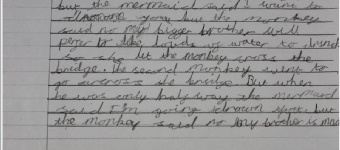 but the mermaid said I want to
drown you but the monkey
said no my bigger brother will
be loads of water to drink
so she let the monkey cross the
bridge. the second monkey went to
go across bridge. But when
he was only halfway the mermaid
said I'm going drown you. but
the monkey said no my brother is more